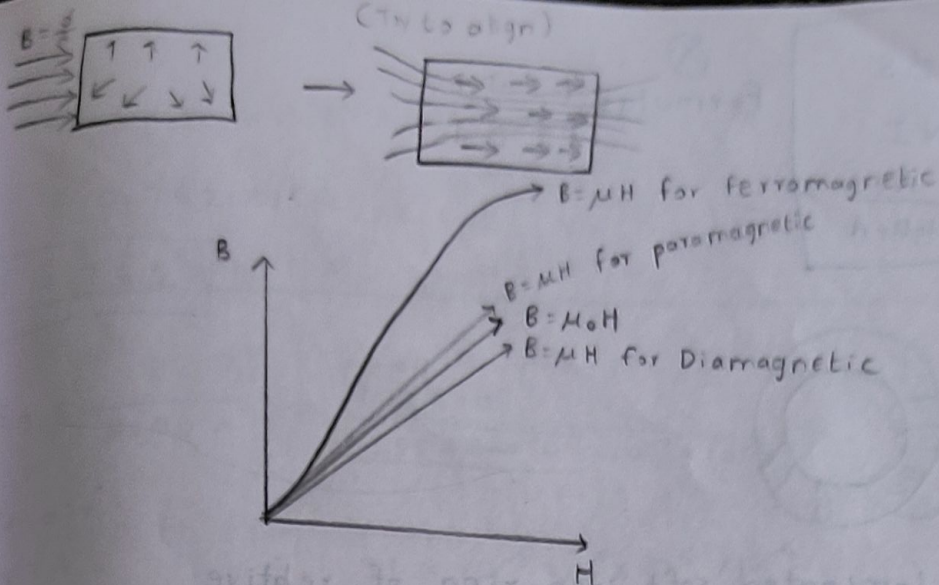 (Try to align)
B =
B = μH for ferromagnetic
B = μH for paramagnetic
B
B = μ₀H
B = μH for Diamagnetic
H